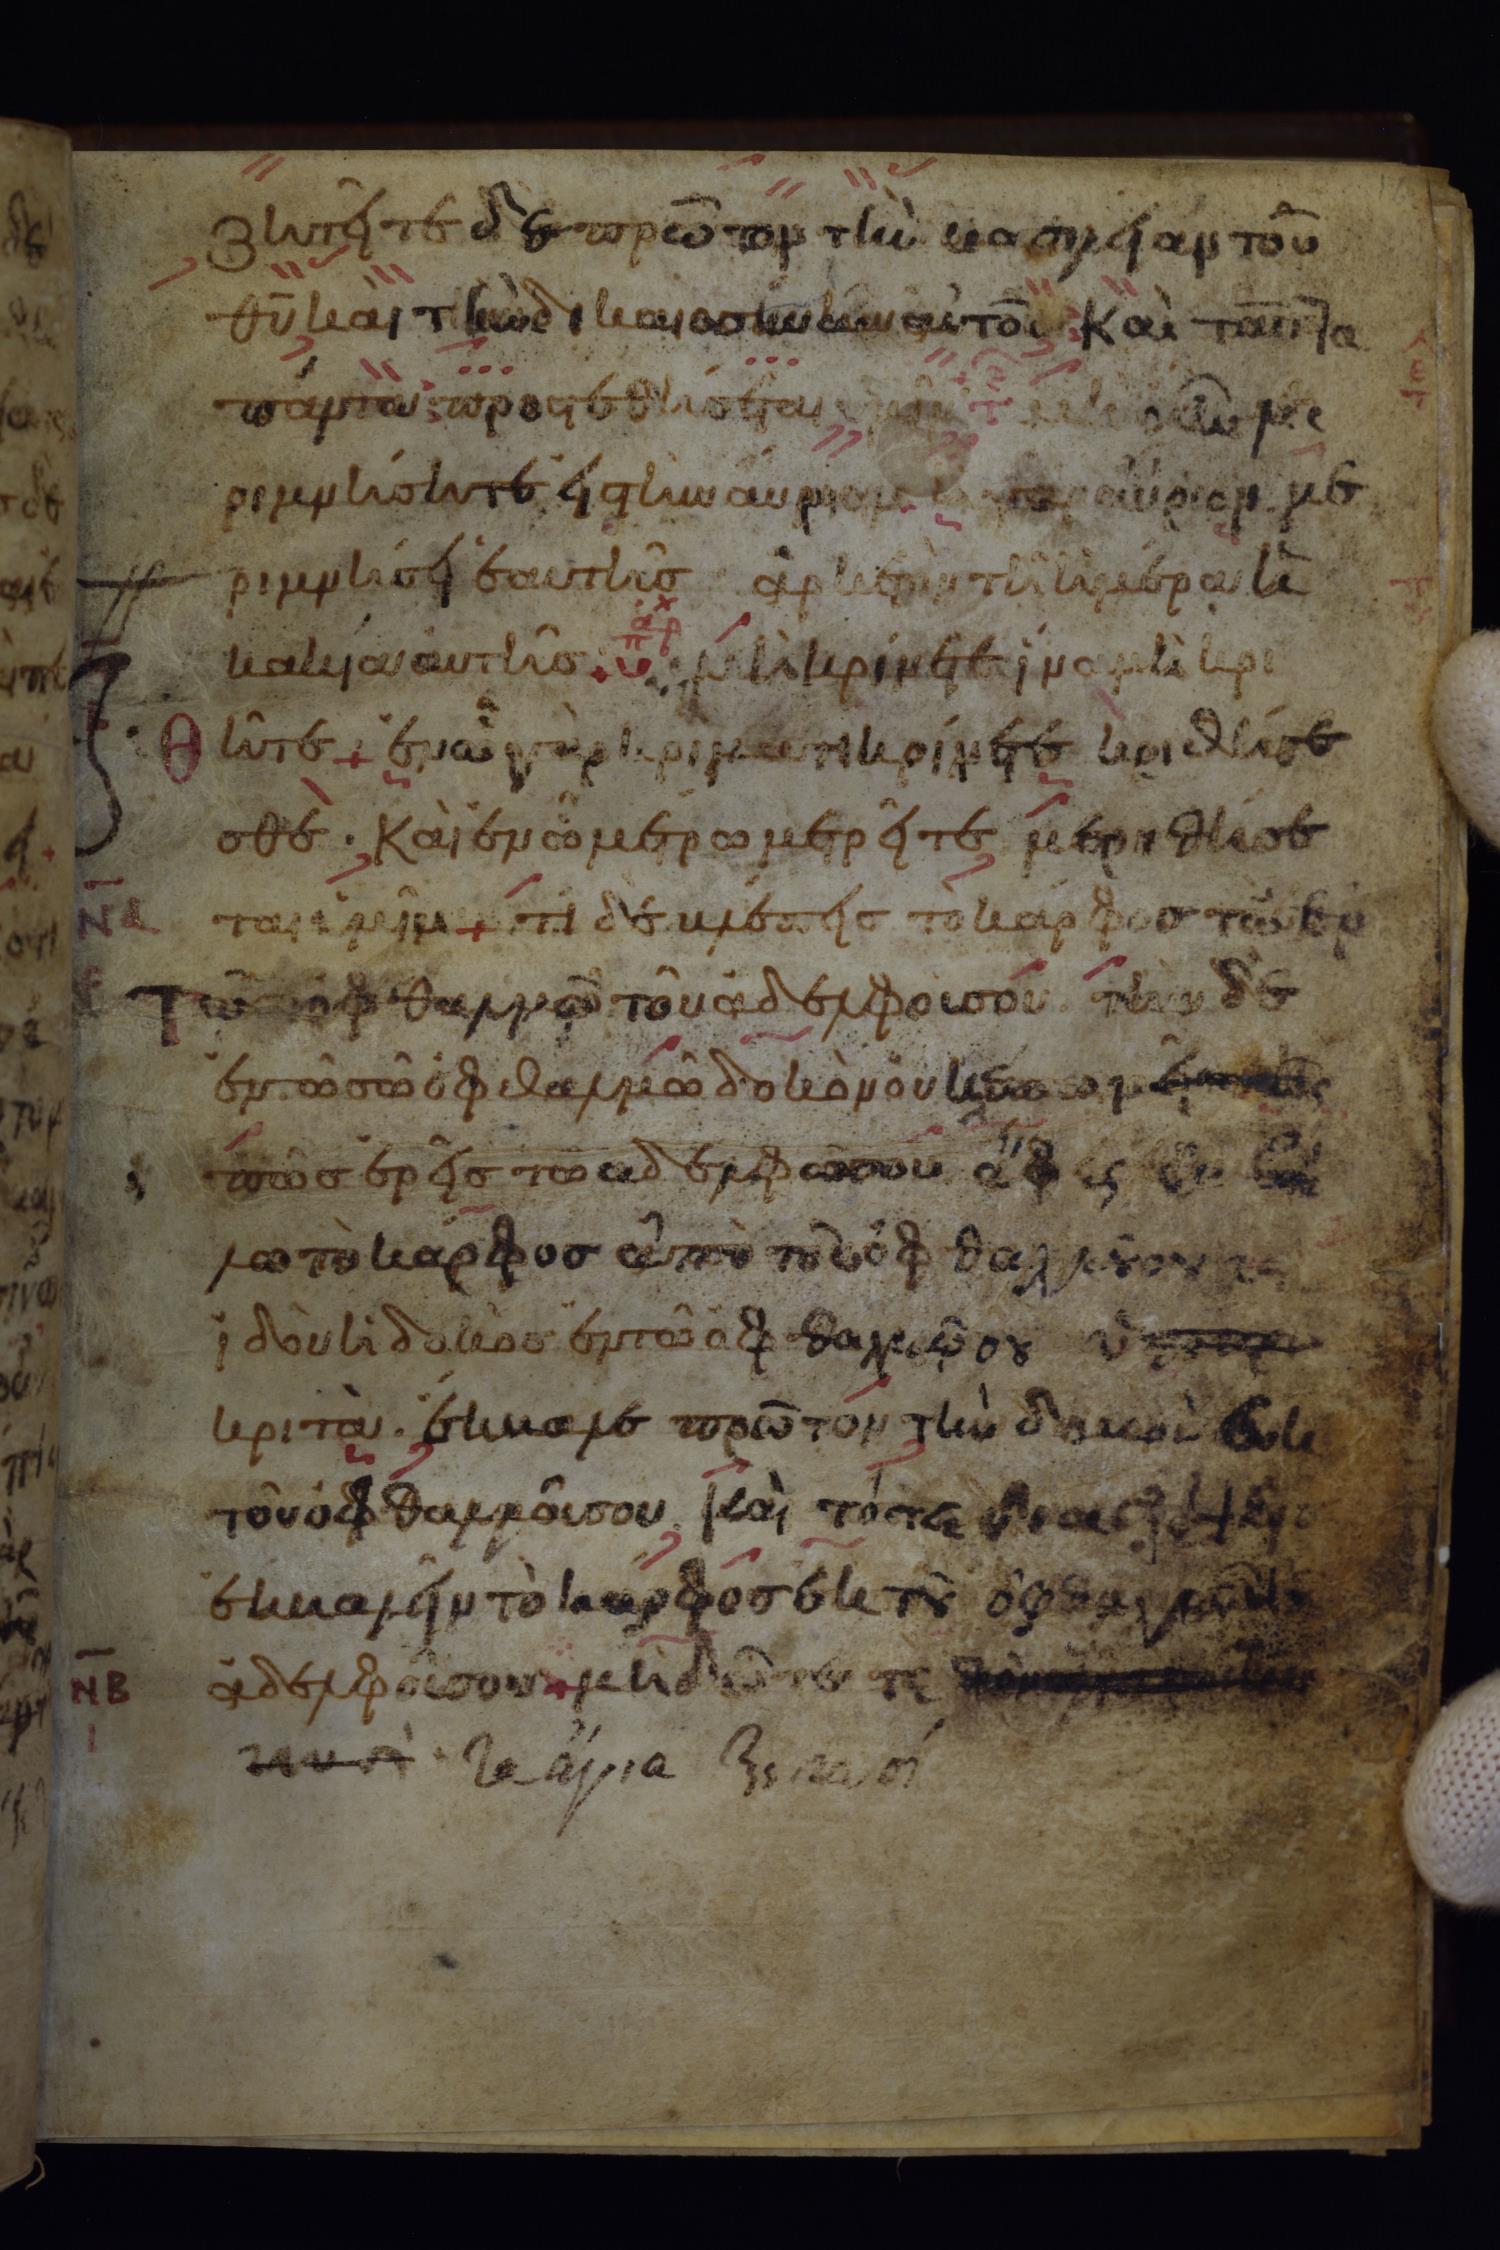 ζητεῖτε δὲ πρῶτον τὴν βασιλείαν τοῦ
θῡ καὶ τὴν δικαιοσύνην αὐτοῦ Καὶ ταῦτα
πάντα προστεθήσεται ὑμῖν με
ριμνήσητε εἰς τὴν αὔριον αὔριον με
ριμνήσει ἑαυτῆς ἀρκετὸν τῇ ἡμέρα ἡ
κακία αὐτῆς μὴ κρίνετε ἵνα μὴ κρι
Θ θῆτε + ἐν ᾧ γὰρ κρίματι κρίνετε κριθήσε
σθε · Καὶ ἐν ᾧ μέτρω μετρεῖτε μετρηθήσε
ΝΑ ται ὑμῖν + τί δὲ βλέπεις τὸ κάρφος τὸ ἐν
τῶ ὀφθαλμῶ τοῦ ἀδελφοῦ σου τὴν δὲ
ἐν τῶ σῶ ὀφθαλμῶ δοκὸν οὐ
πῶς ἐρεῖς τῶ ἀδελφῶ σου ἄφες ἐκβά
λω τὸ κάρφος ἀπὸ τοῦ ὀφθαλμοῦ σου
ἰδοὺ ἡ δοκὸς ἐν τῶ ὀφθαλμῶ σου ὑπο
κριτὰ · ἔκβαλε πρῶτον τὴν δοκὸν ἐκ
τοῦ ὀφθαλμοῦ σου Καὶ τότε διαβλέψεις
ἐκβαλεῖν τὸ κάρφος ἐκ τοῦ ὀφθαλμοῦ
ΝΒ ἀδελφοῦ σου μὴ δῶτε
ἅγια